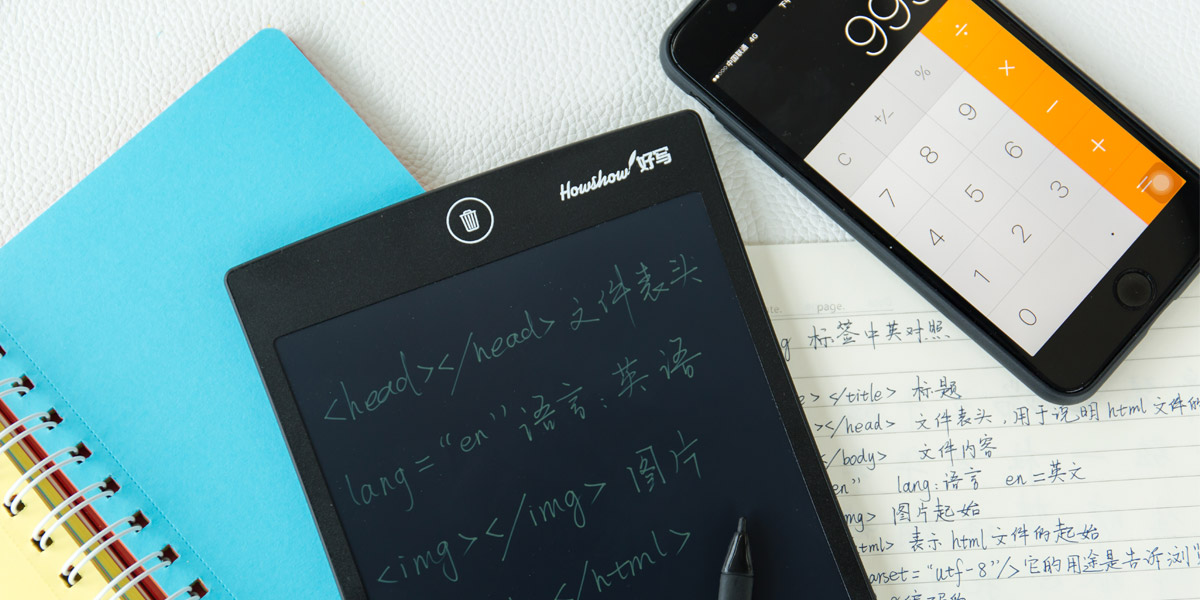 Howshow 好写
<head></head> 文件表头
lang="en"语言:英语
<img></img> 图片
</html>
中国联通 4G
÷
% ×
+/- 9 −
C 8 6 +
7 5 3 =
4 2 .
1
0
page.
标签中英对照
></title> 标题
></head> 文件表头,用于说明html文件的
</body> 文件内容
en" lang:语言 en=英文
图片起始
表示html文件的起始
="utf-8"/>它的用途是告诉浏